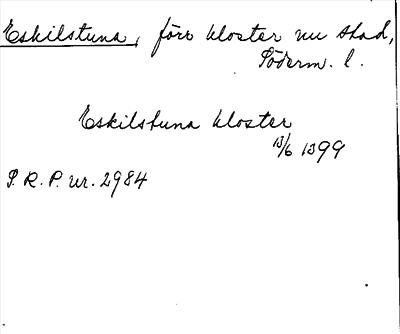 Eskilstuna, förr kloster nu stad,
Söderm. l.
Eskilstuna kloster
13/6 1399
S.R.P. nr. 2984